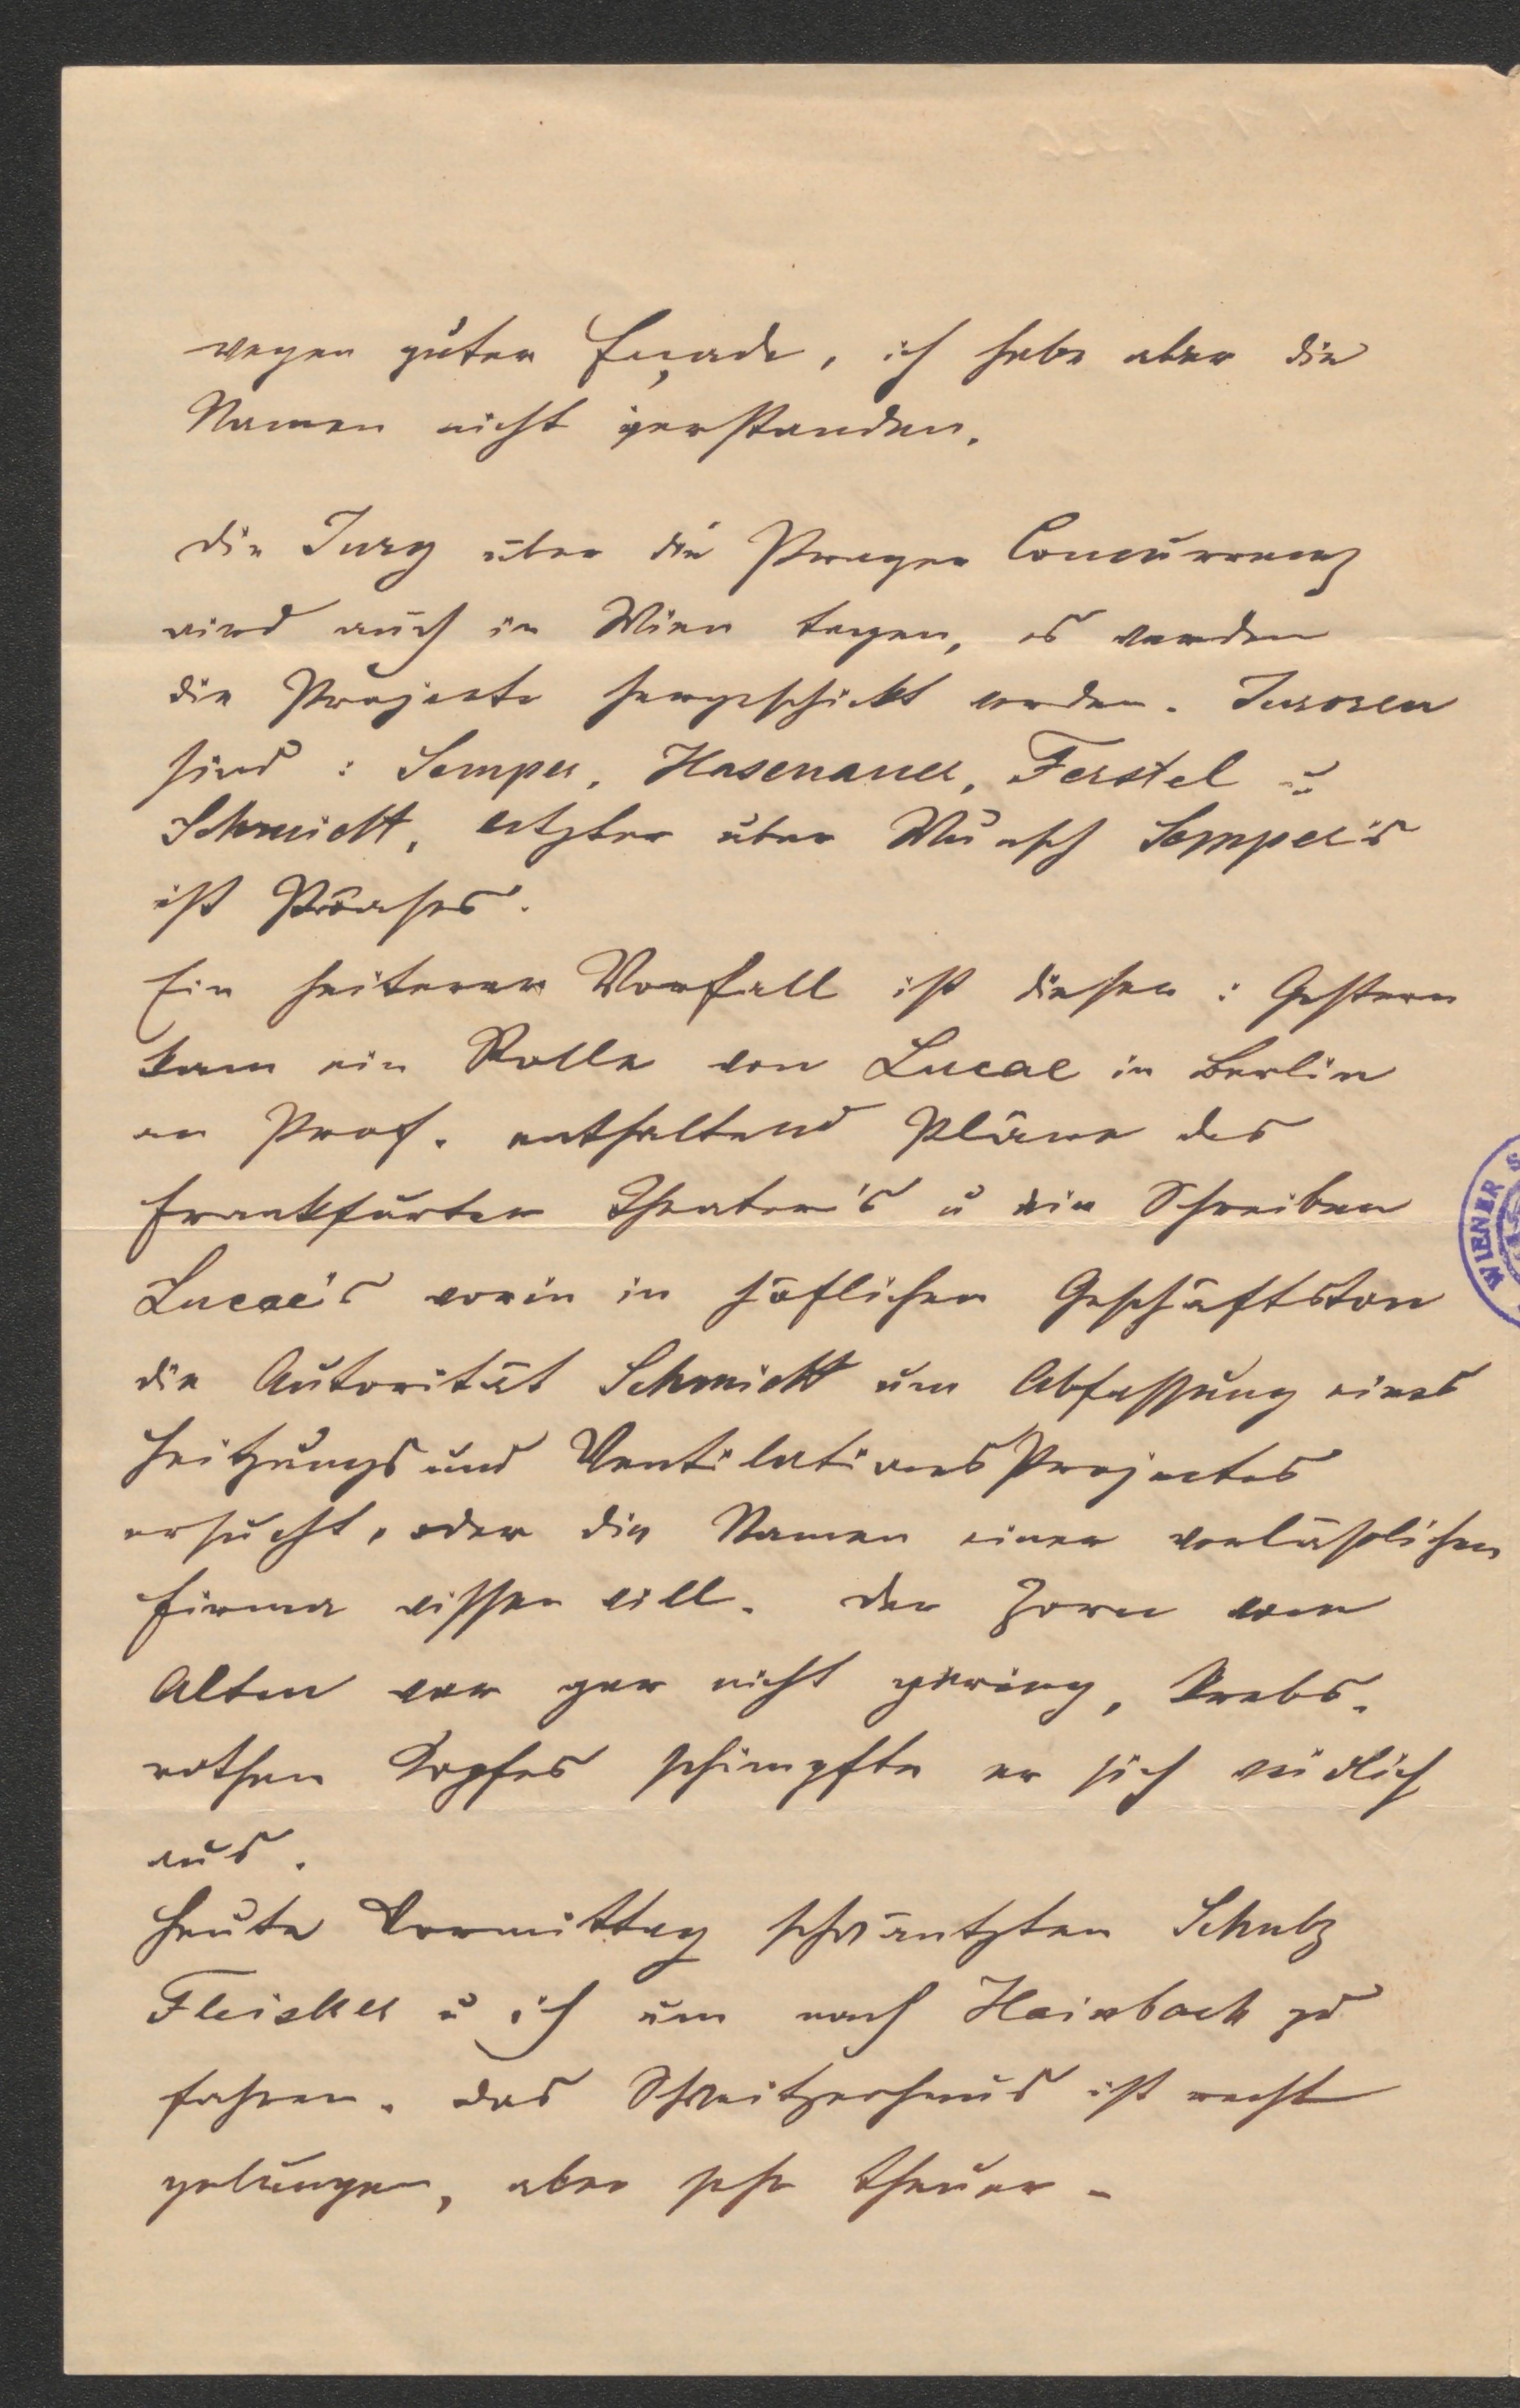 wegen guter Façade, ich habe aber die
Namen nicht verstanden.
Die Jury über die Prager Concurrenz
wird auch in Wien tagen, es werden
die Projecte hergeschickt werden. Juroren
sind : Semper, Hasenauer, Ferstel u
Schmidt, letzter über Wunsch Semper's
ist Präses.
Ein heiterer Vorfall ist dieser : Gestern
kam ein Rolle von Lucae in Berlin
an Prof. enthaltend Pläne des
Frankfurter Theater's u ein Schreiben
Lucae's worin in höflichen Geschäftston
die Autorität Schmidt um Abfassung eines
Heitzungs und Ventilations Projectes
ersucht, oder die Namen einer verläßlichen
Firma wissen will. Der Zorn vom
Alten war gar nicht gering, krebs-
rothen Kopfes schimpfte er sich weidlich
aus.
Heute Vormittag schwäntzten Schulz
Fleischer u ich um nach Hainbach zu
fahren. Das Schweitzerhaus ist recht
gelungen, aber sehr theuer.
WIENER S